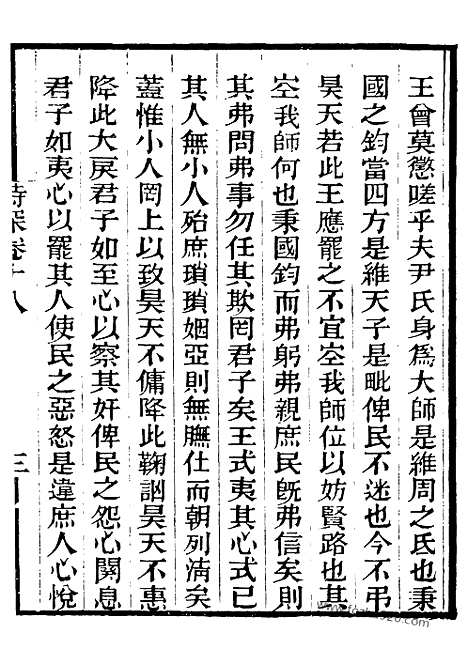 王曾莫懲嗟乎夫尹氏身爲大師是維周之氐也秉
國之鈞當四方是維天子是毗俾民不迷也今不弔
昊天若此王應罷之不宜空我師位以妨賢路也其
空我師何也秉國鈞而弗躬弗親庶民旣弗信矣則
其弗問弗事勿任其欺罔君子矣王式夷其心式已
其人無小人殆庶瑣瑣姻亞則無膴仕而朝列淸矣
蓋惟小人罔上以致昊天不傭降此鞠訩昊天不惠
降此大戾君子如至心以察其奸俾民之怨心闋息
君子如夷心以罷其人使民之惡怒是違庶人心悅
詩深卷十八
三